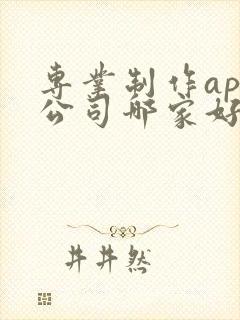 専業制作ap
公司哪家好
井井然